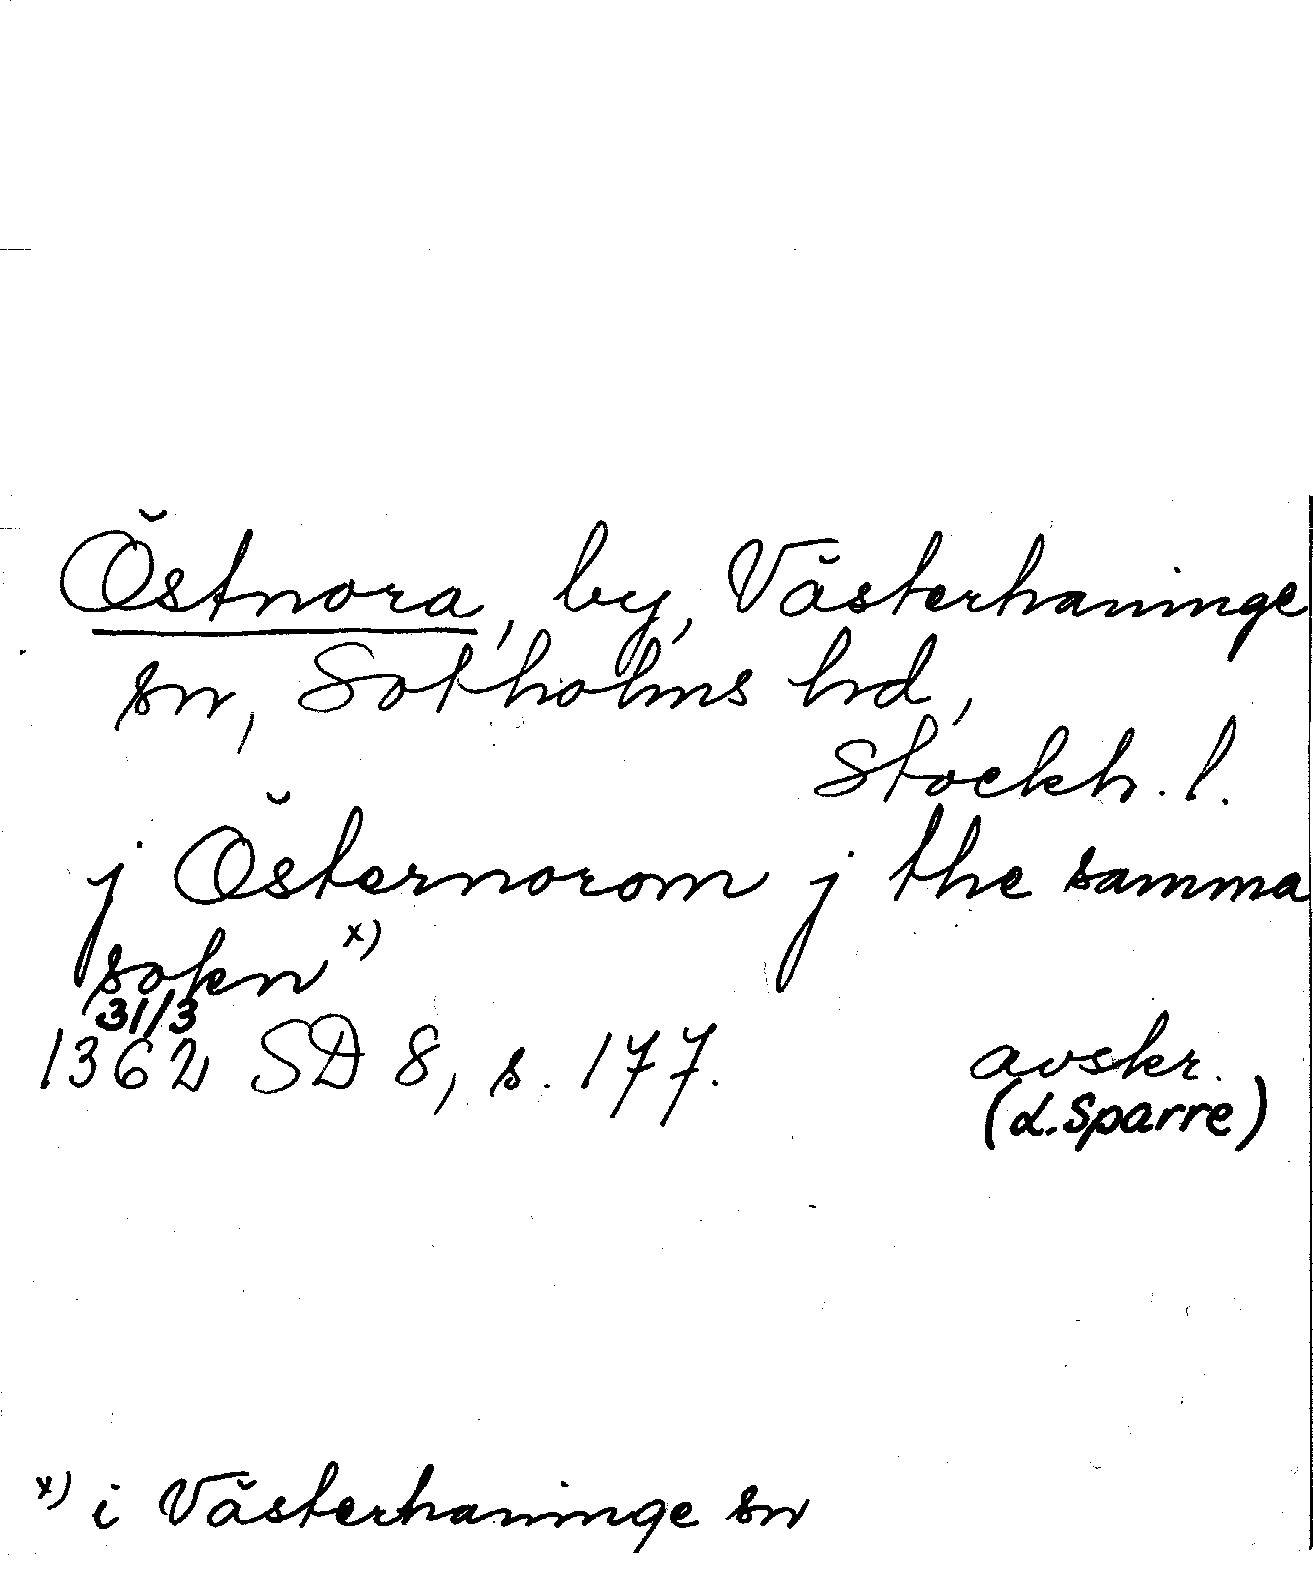 Östnora, by, Västerhaninge
sn, Sotholms hd,
Stockh. l.
j Östernorom j the samma
sokn x)
31/3
1362 SD 8, s. 177. avskr.
(L. Sparre)
x) i Västerhaninge sn